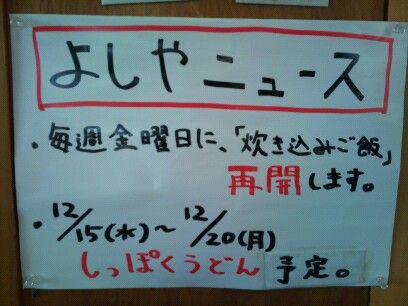 よしやニュース
・毎週金曜日に、「炊き込みご飯」
再開します。
・12/15(水)～12/20(月)
しっぽくうどん予定。